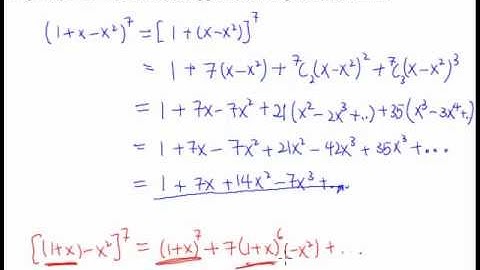 (1+x-x²)⁷ = [1+(x-x²)]⁷
= 1 + 7(x-x²) + ⁷C₂(x-x²)² + ⁷C₃(x-x²)³
= 1 + 7x - 7x² + 21(x² - 2x³ + ..) + 35(x³ - 3x⁴ + .
= 1 + 7x - 7x² + 21x² - 42x³ + 35x³ + ...
= 1 + 7x + 14x² - 7x³ + ...
[(1+x) - x²]⁷ = (1+x)⁷ + 7(1+x)⁶(-x²) + ...